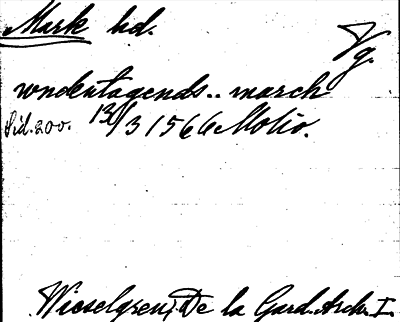 Mark hd.
Vg.
wndentagends.. march
Sid.200. 13/3 1566 Molio.
Wieselgren, De la Gard. Arch. I.